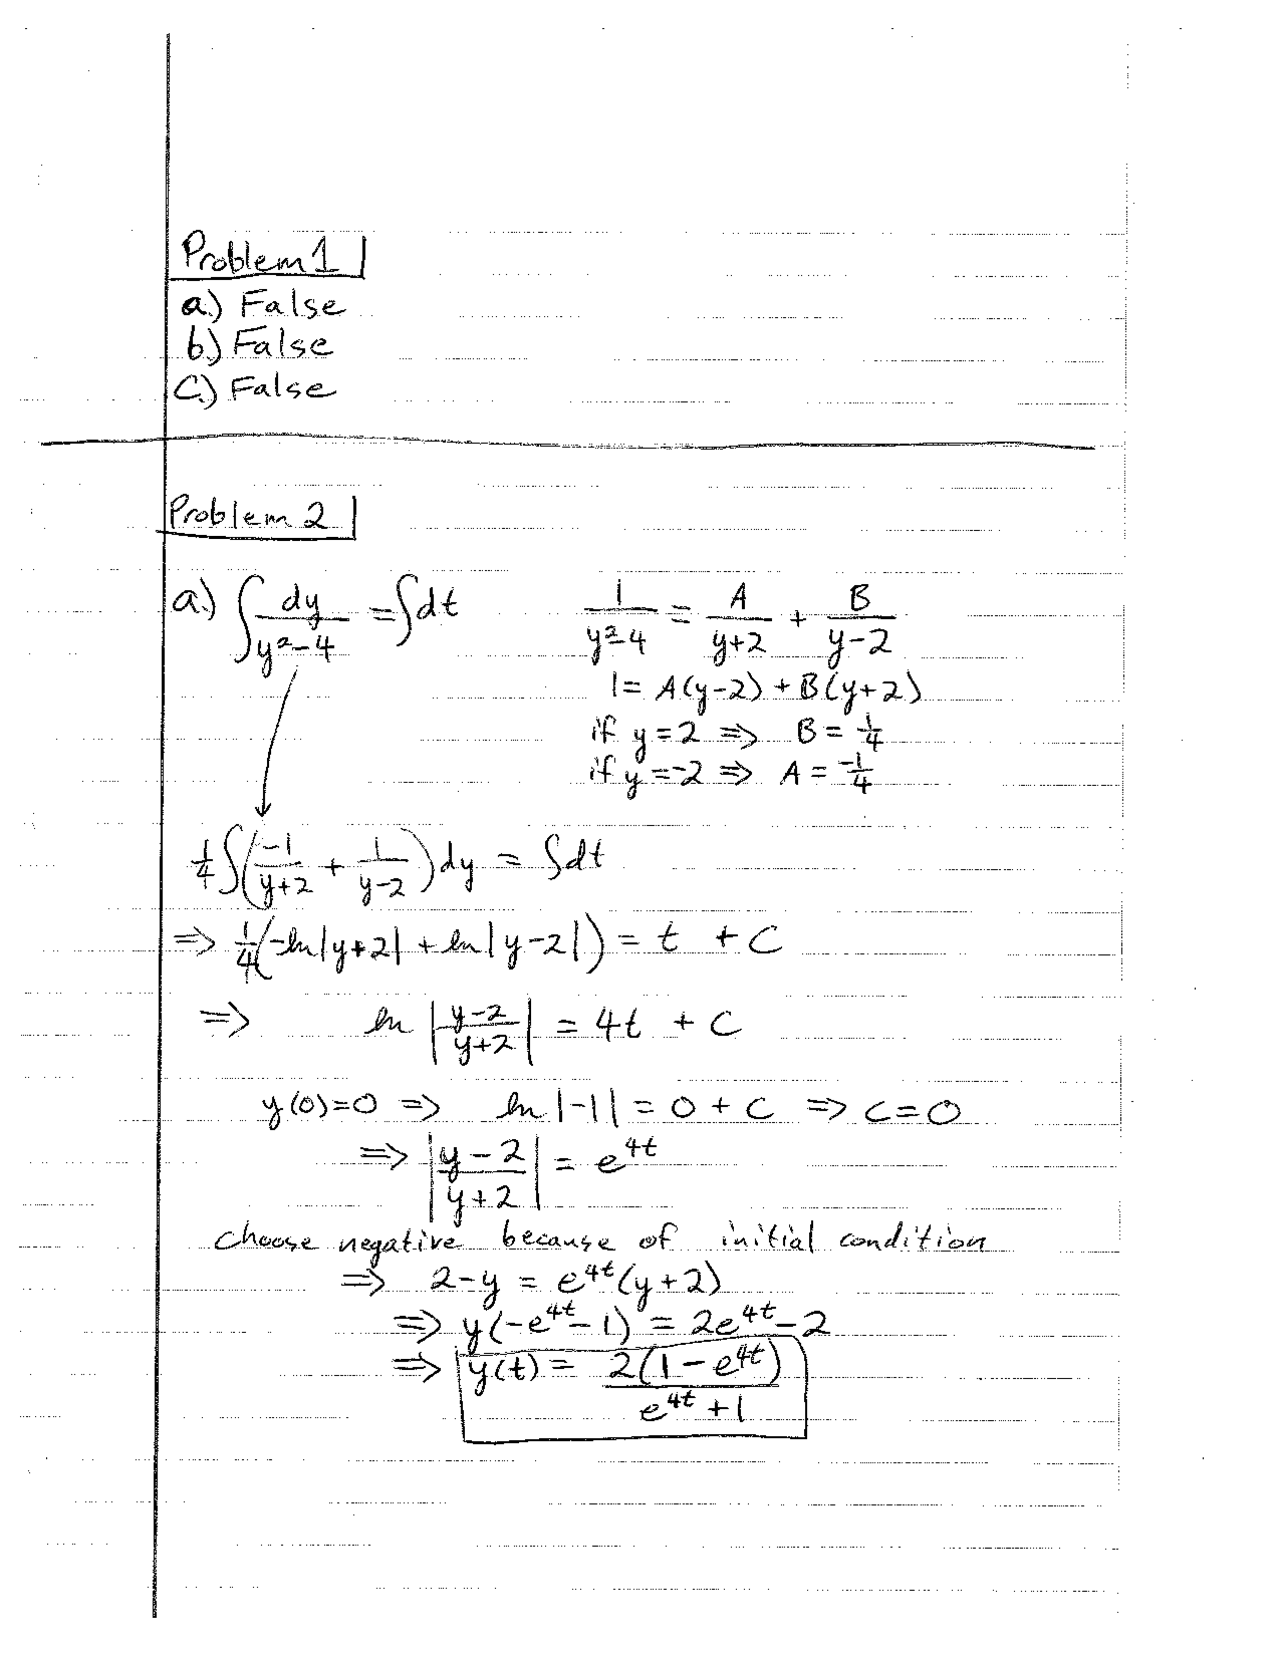 Problem 1
a.) False
b.) False
c.) False
Problem 2
a.) ∫ dy/(y²-4) = ∫dt    1/(y²-4) = A/(y+2) + B/(y-2)
1 = A(y-2) + B(y+2)
if y=2 ⇒ B = 1/4
if y=-2 ⇒ A = -1/4
1/4 ∫(-1/(y+2) + 1/(y-2)) dy = ∫dt
⇒ 1/4(-ln|y+2| + ln|y-2|) = t + C
⇒ ln |(y-2)/(y+2)| = 4t + C
y(0)=0 ⇒ ln|-1| = 0 + C ⇒ C=0
⇒ |(y-2)/(y+2)| = e^{4t}
choose negative because of initial condition
⇒ 2-y = e^{4t}(y+2)
⇒ y(-e^{4t}-1) = 2e^{4t}-2
⇒ y(t) = 2(1-e^{4t})/(e^{4t}+1)